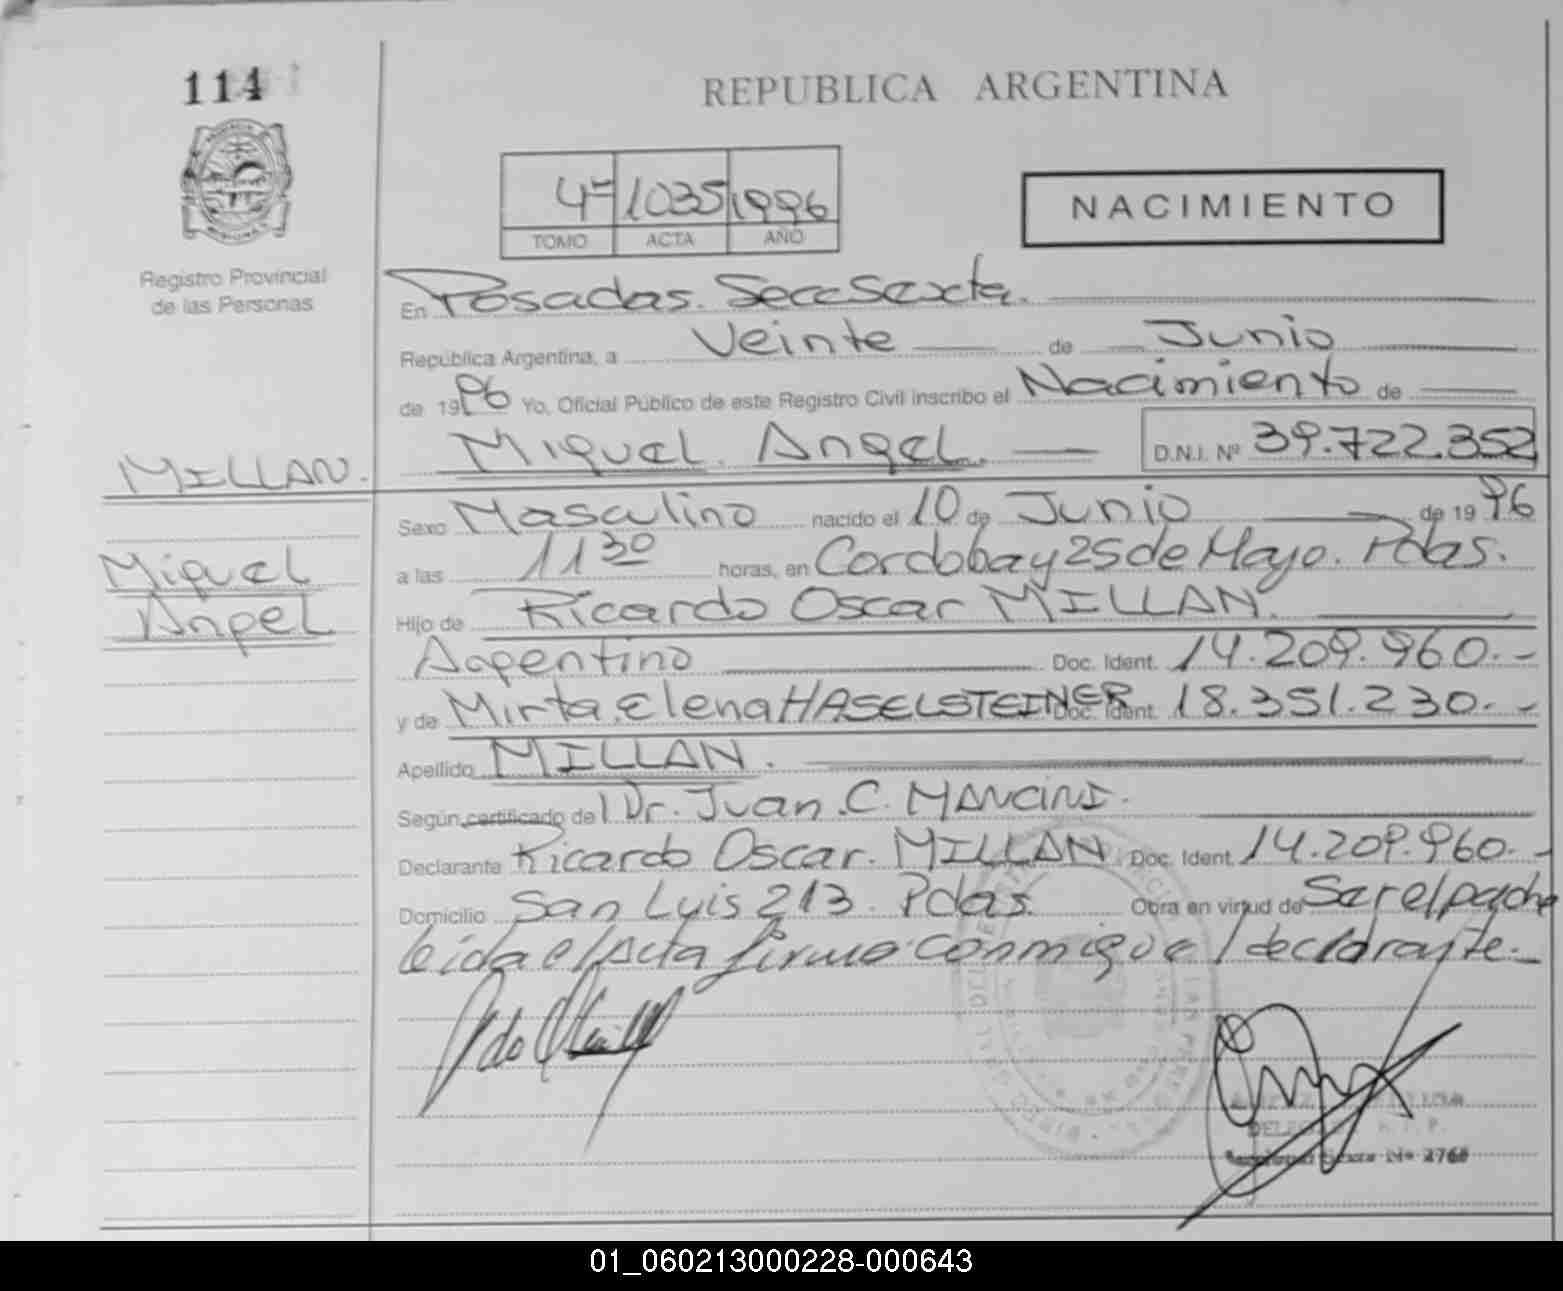 114
REPUBLICA ARGENTINA
4= 1035 1996
TOMO ACTA AÑO
NACIMIENTO
Registro Provincial
de las Personas
En Posadas. Secc Sexta.
República Argentina, a Veinte de Junio
de 1996 Yo, Oficial Público de este Registro Civil inscribo el Nacimiento de
MILLAN. Miguel Angel. D.N.I. Nº 39.722.352
Sexo Masculino nacido el 10 de Junio de 1996
Miguel
Angel
a las 11 30 horas, en Cordoba y 25 de Mayo. Pdas.
Hijo de Ricardo Oscar MILLAN.
Argentino Doc. Ident. 14.209.960.-
y de Mirta Elena HASELSTEINER Doc. Ident. 18.351.230.-
Apellido MILLAN.
Según certificado del Dr. Juan C. MANCINI.
Declarante Ricardo Oscar. MILLAN Doc. Ident. 14.209.960.-
Domicilio San Luis 213. Pdas. Obra en virtud de Ser el padre
leida el Acta firma conmigo el declarante.-
01_060213000228-000643